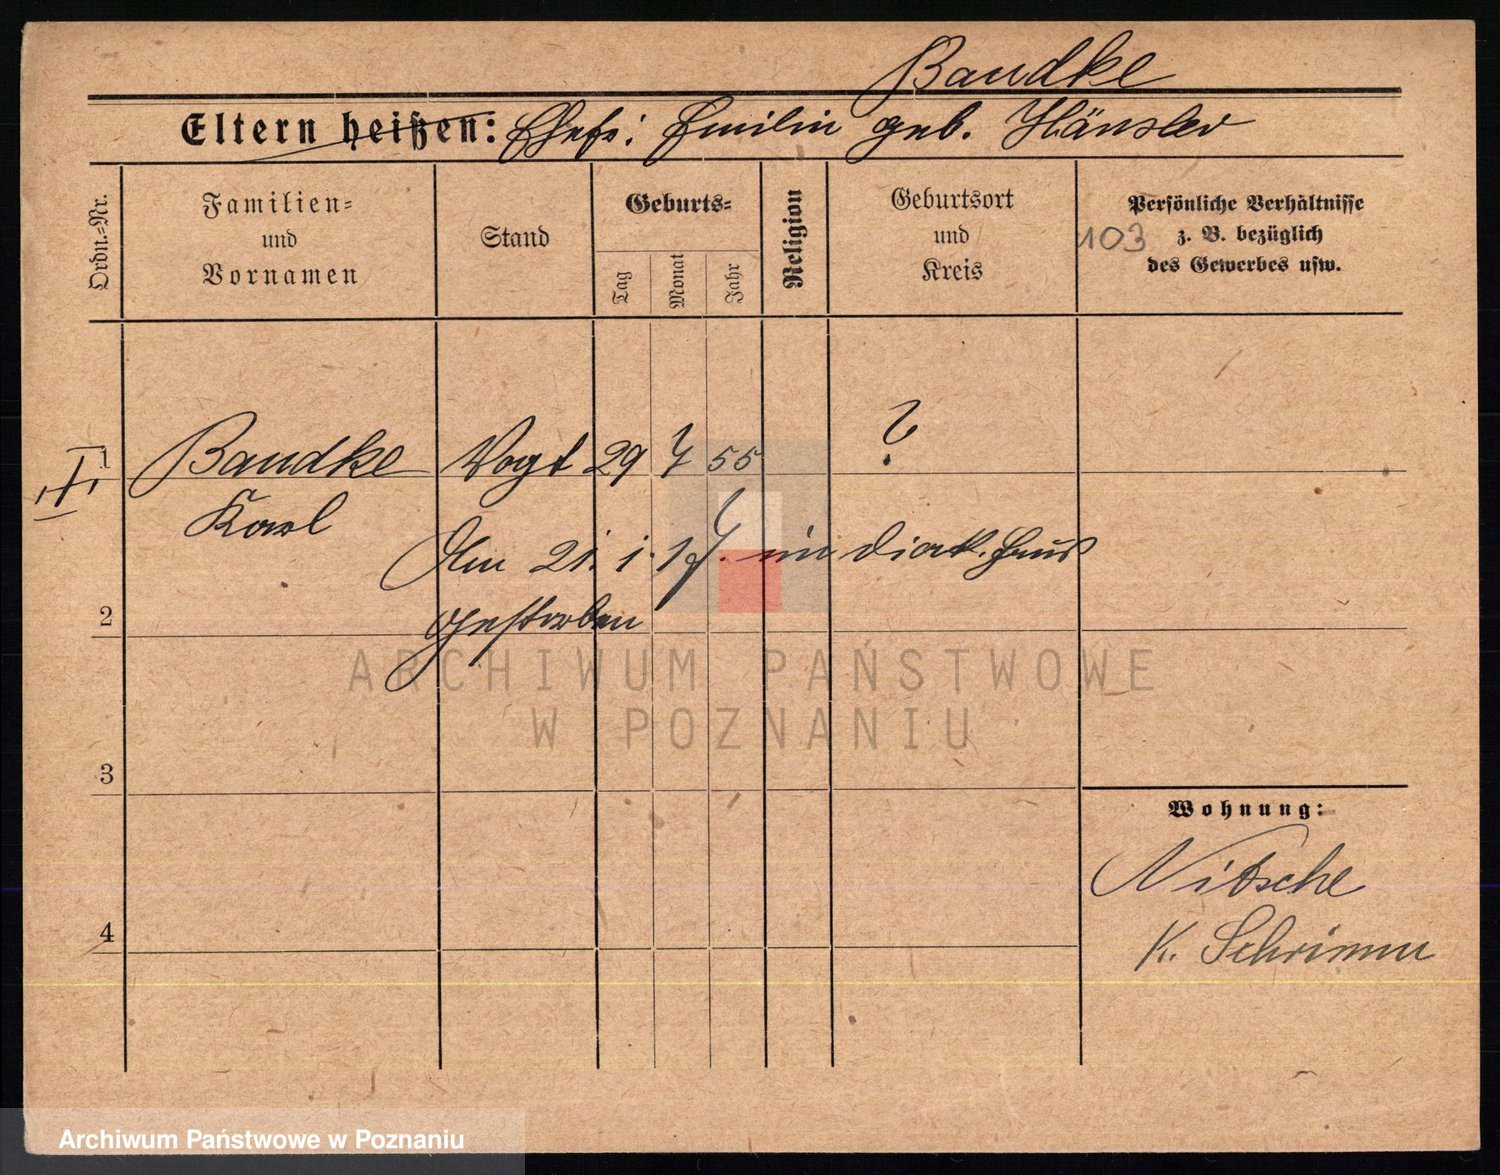 Bandke
Eltern heißen: Ehefr: Emilie geb. Hänsler
Ordn.-Nr.
Familien-
und
Vornamen
Stand
Geburts-
Tag
Monat
Jahr
Religion
Geburtsort
und
Kreis
103
Persönliche Verhältnisse
z. B. bezüglich
des Gewerbes usw.
1
Bandke Vogt 29 7 55 ?
Karl
Am 21. 1. 17. im Diak. Haus
gestorben
2
3
4
Wohnung:
Nitsche
K. Schrimm
ARCHIWUM PAŃSTWOWE
W POZNANIU
Archiwum Państwowe w Poznaniu